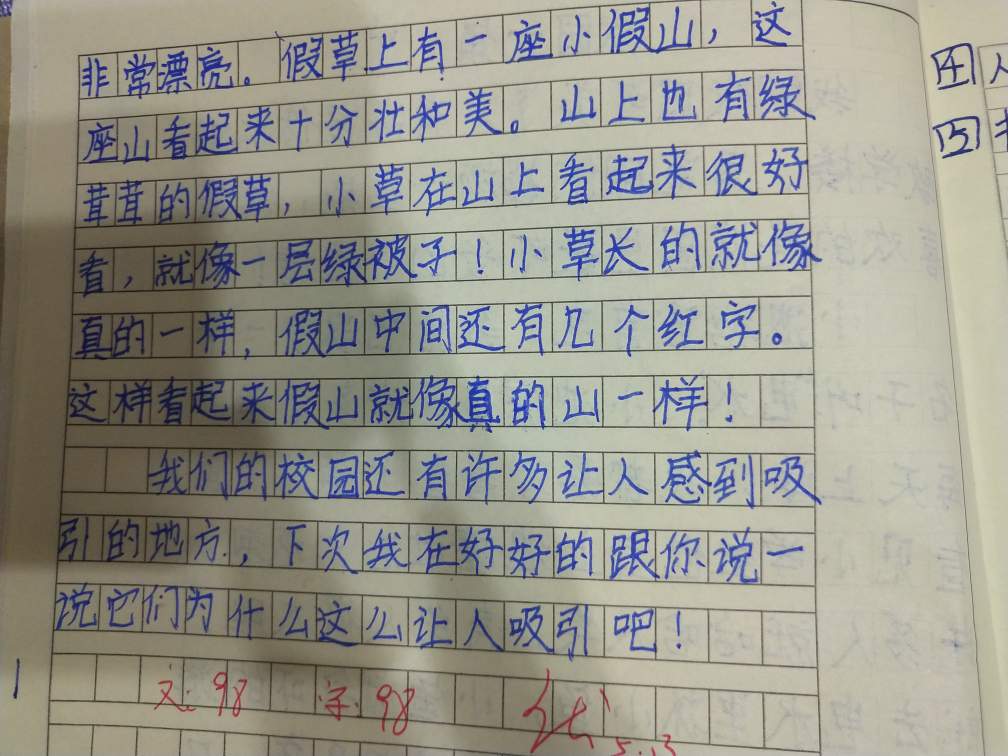 非常漂亮。假草上有一座小假山，这
座山看起来十分壮和美。山上也有绿
茸茸的假草，小草在山上看起来很好
看，就像一层绿被子！小草长的就像
真的一样，假山中间还有几个红字。
这样看起来假山就像真的山一样！
我们的校园还有许多让人感到吸
引的地方，下次我在好好的跟你说一
说它们为什么这么让人吸引吧！
文：98 字：98 优
5.13